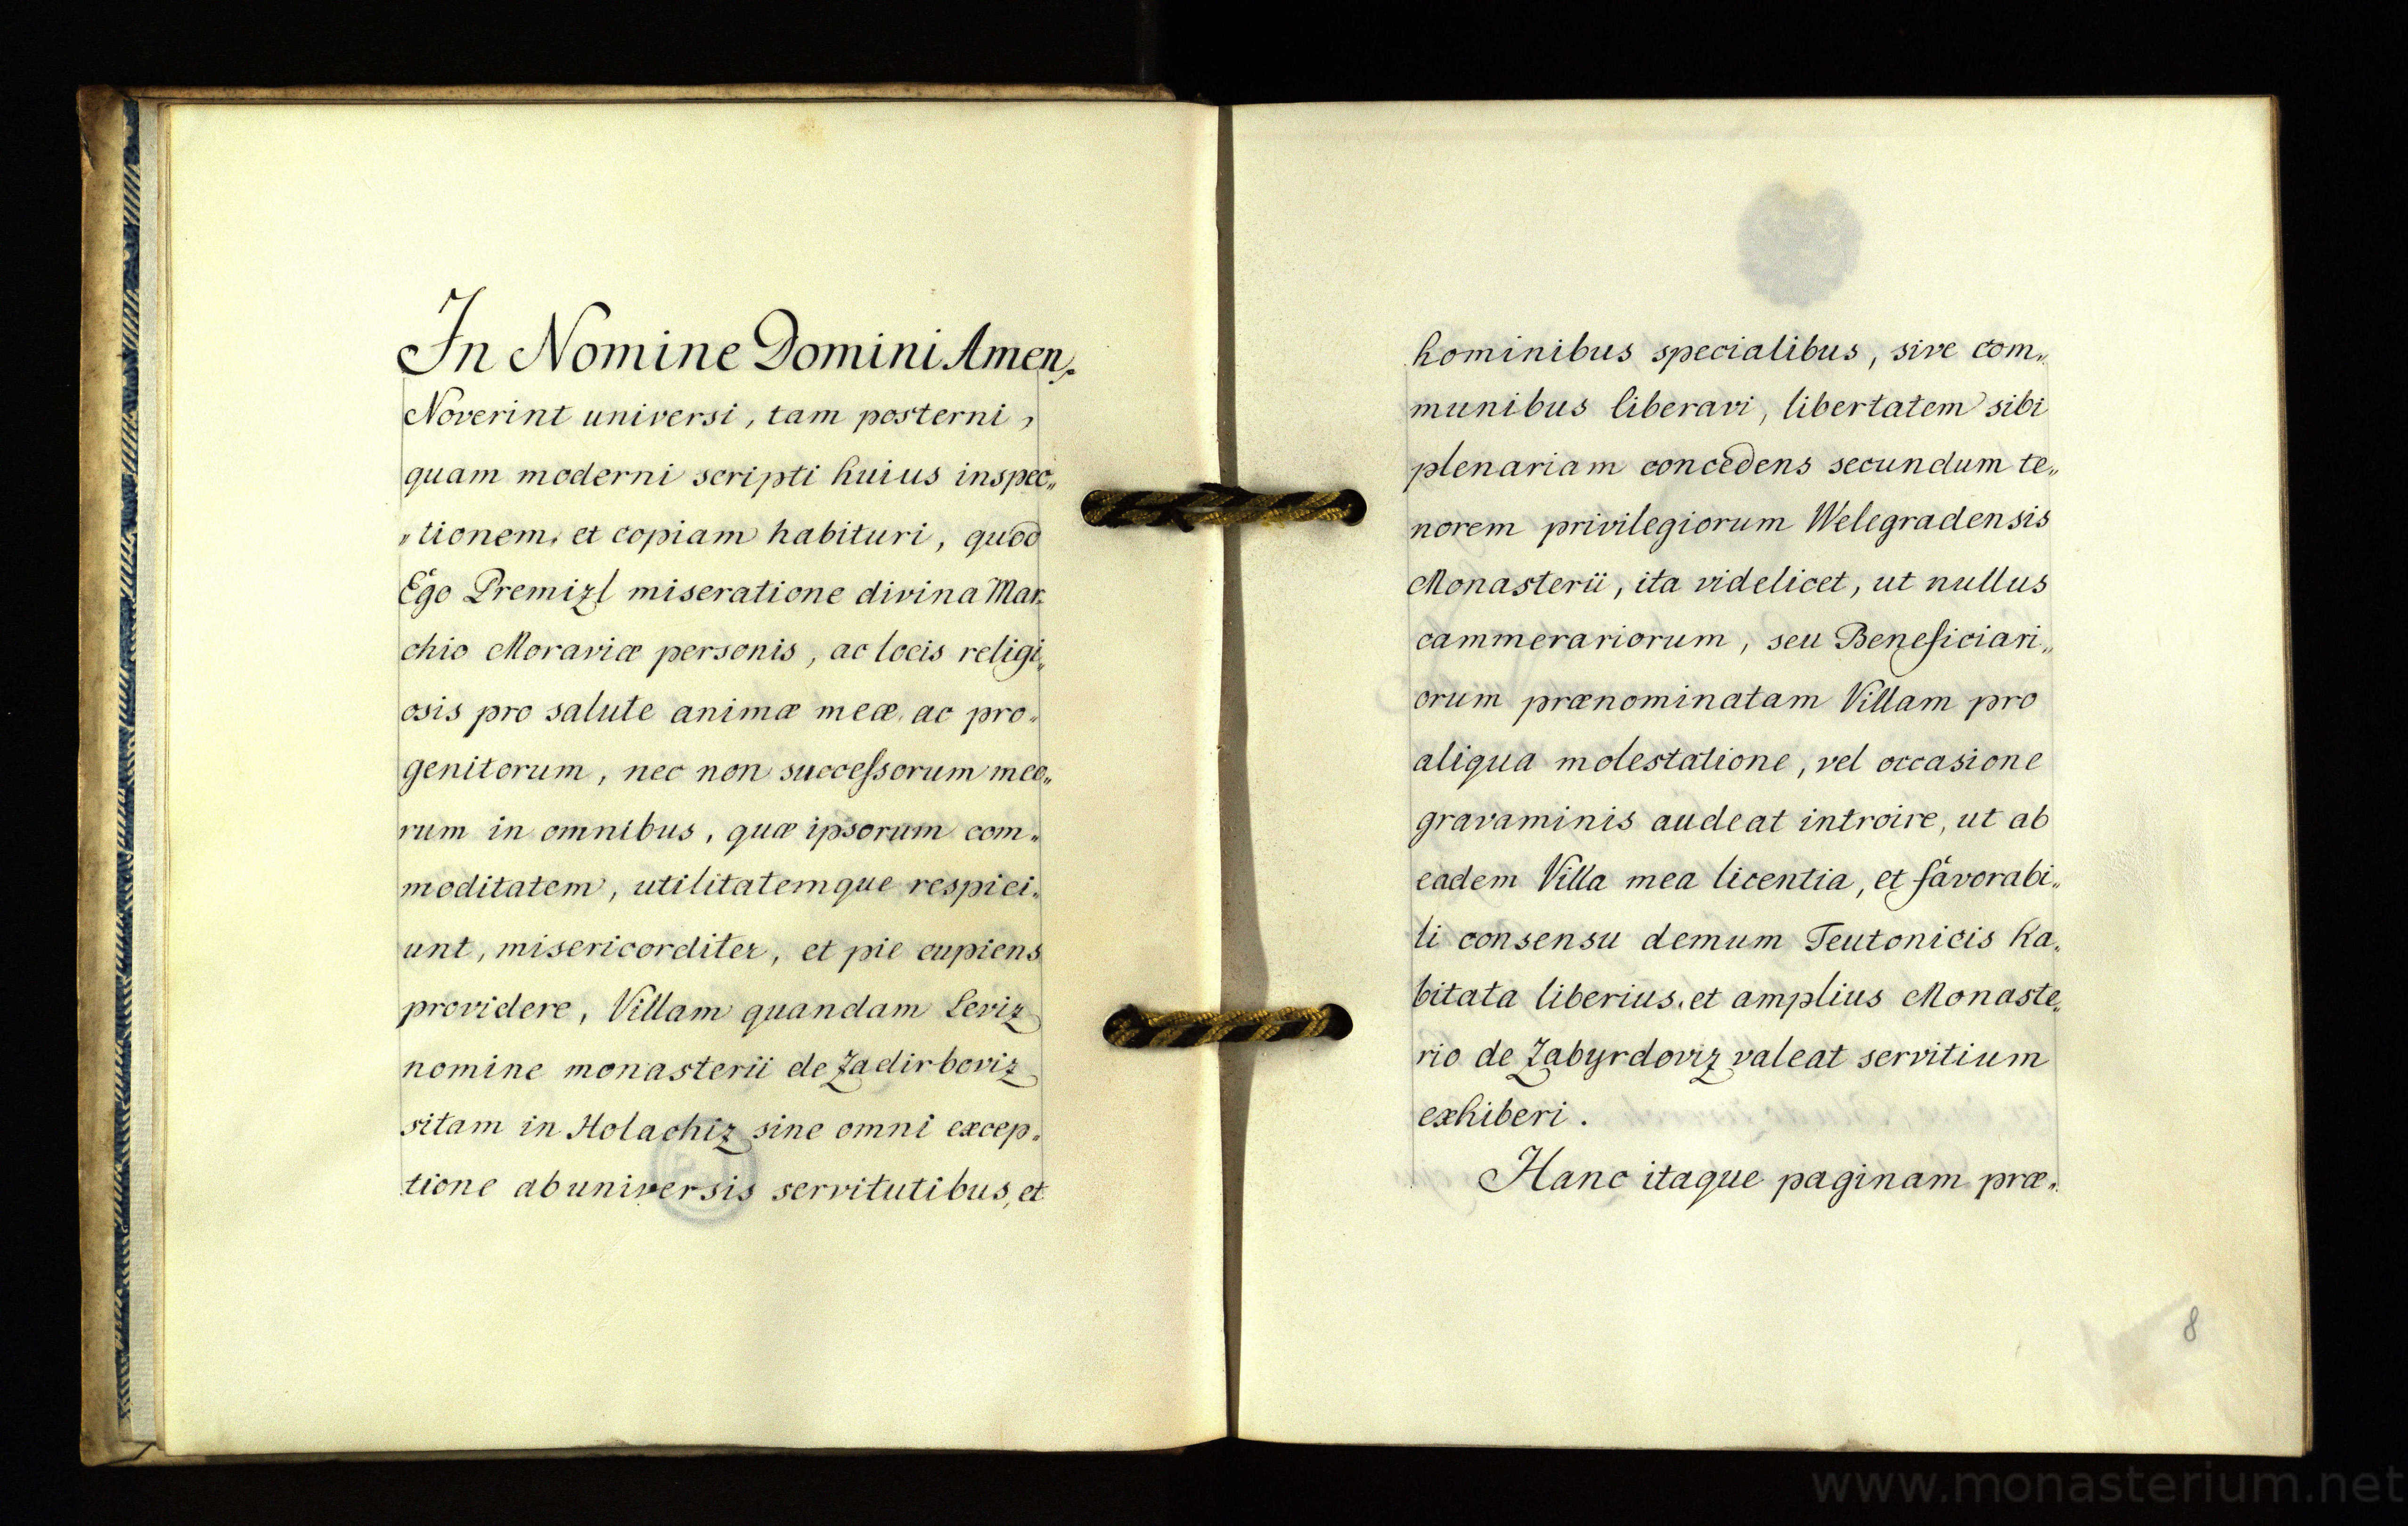 In Nomine Domini Amen.
Noverint universi, tam posterni,
quam moderni scripti huius inspec„
„tionem, et copiam habituri, quod
Ego Premizl miseratione divina Mar„
chio Moraviæ personis, ac locis religi„
osis pro salute animæ meæ, ac pro„
genitorum, nec non successorum meo„
rum in omnibus, quæ ipsorum com„
moditatem, utilitatemque respici„
unt, misericorditer, et pie cupiens
providere, Villam quandam Leviz
nomine monasterii de Zadirboviz
sitam in Holachiz sine omni excep„
tione ab universis servitutibus, et
hominibus specialibus, sive com„
munibus liberavi, libertatem sibi
plenariam concedens secundum te„
norem privilegiorum Welegradensis
Monasterii, ita videlicet, ut nullus
cammerariorum, seu Beneficiari„
orum prænominatam Villam pro
aliqua molestatione, vel occasione
gravaminis audeat introire, ut ab
eadem Villa mea licentia, et favorabi„
li consensu demum Teutonicis ha„
bitata liberius, et amplius Monaste„
rio de Zabyrdoviz valeat servitium
exhiberi.
Hanc itaque paginam præ„
8
www.monasterium.net